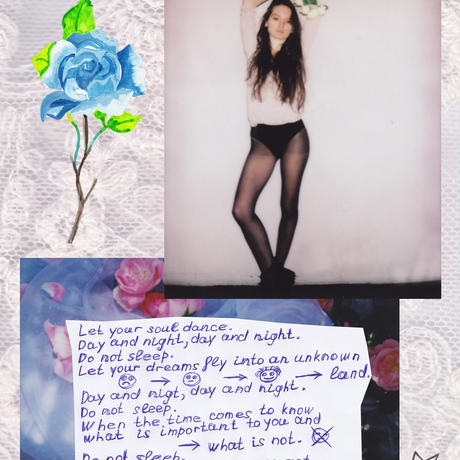 Let your soul dance.
Day and night, day and night.
Do not sleep.
Let your dreams fly into an unknown
→ → → land.
Day and nigt, day and night.
Do not sleep.
When the time comes to know
what is important to you and
→ what is not.
Do not sleep.